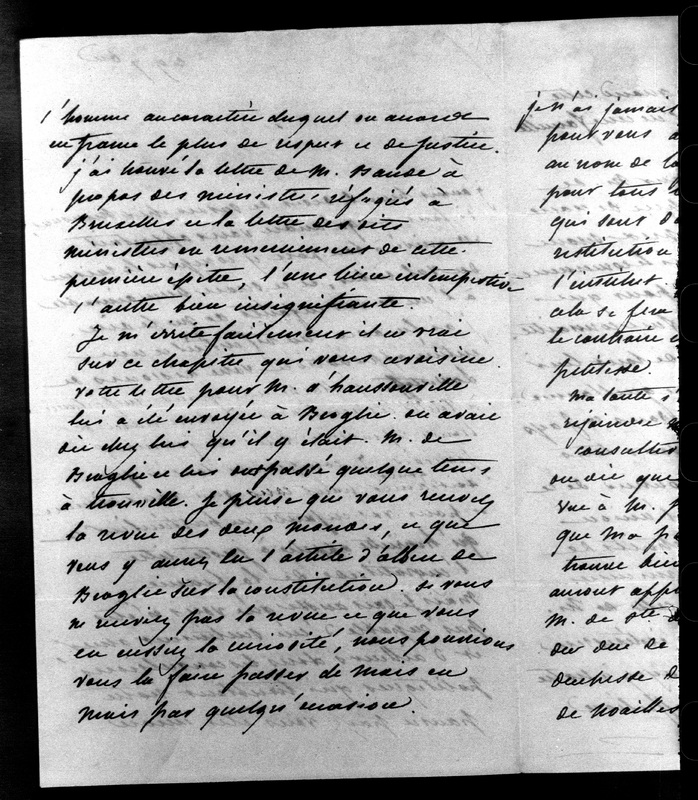 l'homme au caractère duquel on accorde
en france le plus de respect et de justice.
j'ai trouvé la lettre de M. Baude à
propos des ministres réfugiés à
Bruxelles et la lettre des dits
ministres en remerciement de cette
première épitre, l'une bien intempestive
l'autre bien insignifiante.
Je m'irrite facilement il est vrai
sur ce chapitre qui vous avoisine.
votre lettre pour M. d'haussonville
lui a été envoyée à Broglie. on avait
dit chez lui qu'il y était. M. de
Broglie et lui ont passé quelque tems
à trouville. Je pense que vous recevez
la revue des deux mondes, et que
vous y aurez lu l'article d'albert de
Broglie sur la constitution. si vous
ne recevez pas la revue et que vous
en eussiez la curiosité, nous pourrions
vous la faire passer de main en
main par quelqu'occasion.
je n'ai jamais
pour vous a
au nom de la
pour tous l
qui sont d
restitution
l'institut
cela se fera
le contraire
petitesse.
ma tante s'
rejoindre
consulter
on dit que
vue à M.
que ma pa
trouve bien
auront app
M. de ste
du duc de
duchesse d
de noailles